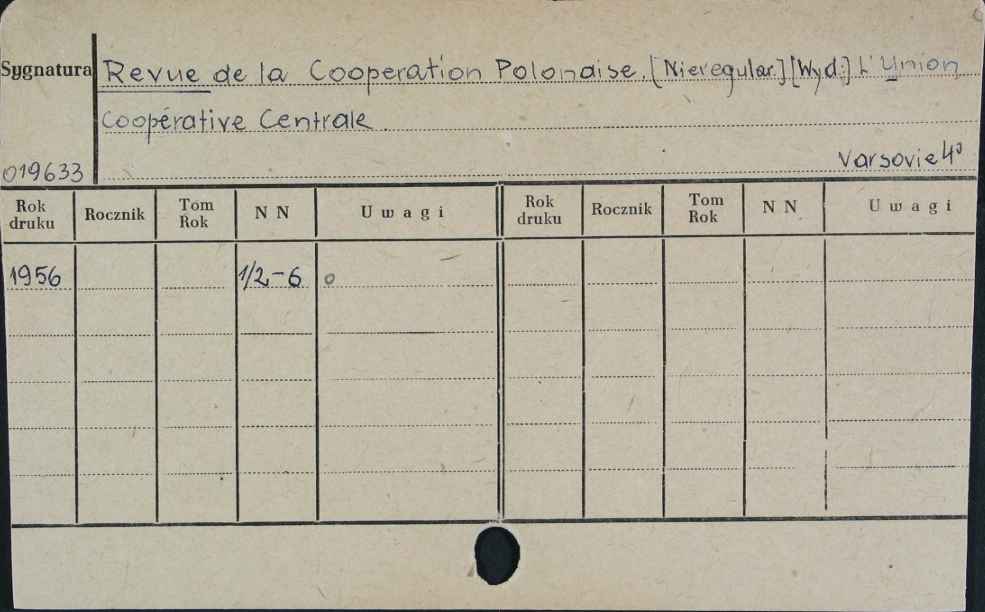 Sygnatura Revue de la Cooperation Polonaise. [Nieregular.] [Wyd.:] L'Union
Coopérative Centrale.
019633 Varsovie 4°
Rok druku Rocznik Tom Rok N N Uwagi Rok druku Rocznik Tom Rok N N Uwagi
1956 1/2-6 o